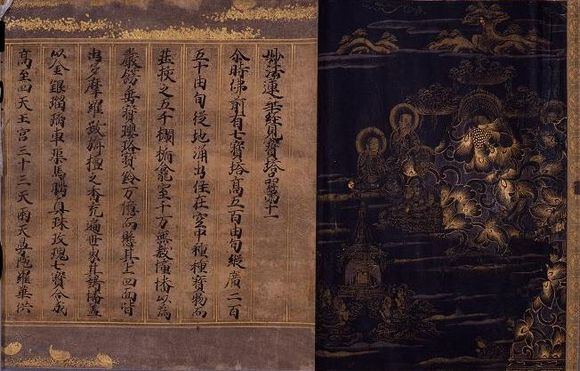 妙法蓮華經見寶塔品第十一
尒時佛前有七寶塔高五百由旬縱廣二百
五十由旬從地涌出住在空中種種寶物而
莊挍之五千欄楯龕室千万無數幢幡以為
嚴飾垂寶瓔珞寶鈴万億而懸其上四面皆
出多摩羅跋栴檀之香充遍世界其諸幡蓋
以金銀瑠璃車渠馬瑙真珠玫瑰七寶合成
高至四天王宮三十三天雨天曼陀羅華供